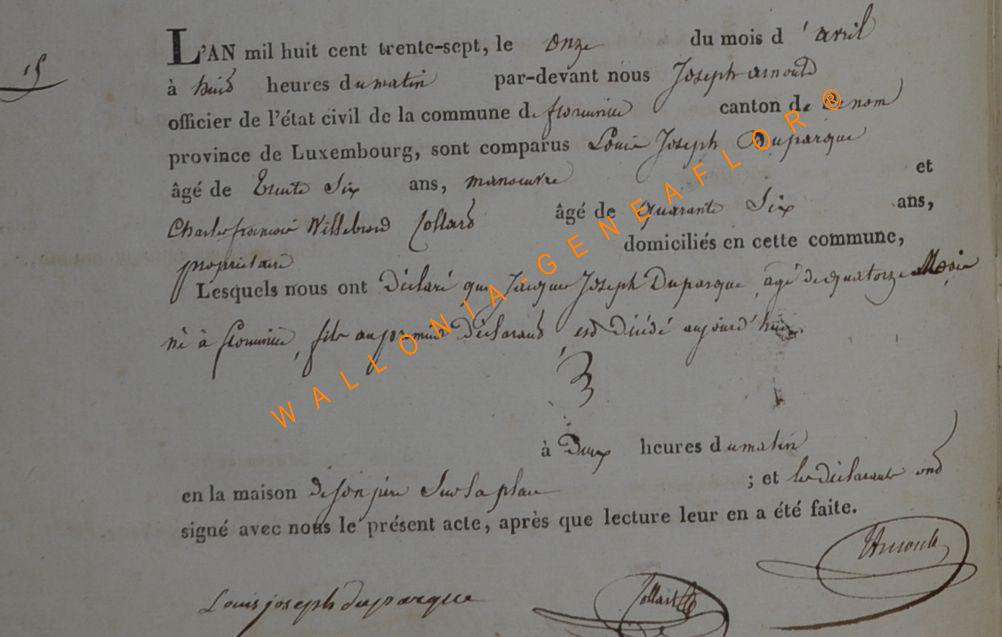 15
L'AN mil huit cent trente-sept, le onze du mois d'avril
à huit heures du matin par-devant nous Joseph arnould
officier de l'état civil de la commune de florenville canton de
province de Luxembourg, sont comparus Louis Joseph Duparque
âgé de trente Six ans, manoeuvre et
Charles françois Willebrord Collard âgé de quarante Six ans,
propriétaire domiciliés en cette commune,
Lesquels nous ont déclaré que Jacque Joseph Duparque, agé de quatorze Mois
né à, fils au premier déclarant est décédé aujourd'hui
à Deux heures du matin
en la maison de son père Sur la place ; et les déclarants ont
signé avec nous le présent acte, après que lecture leur en a été faite.
JArnould
Louis joseph duparque Collard
WALLONIA-GENEAFLOR®